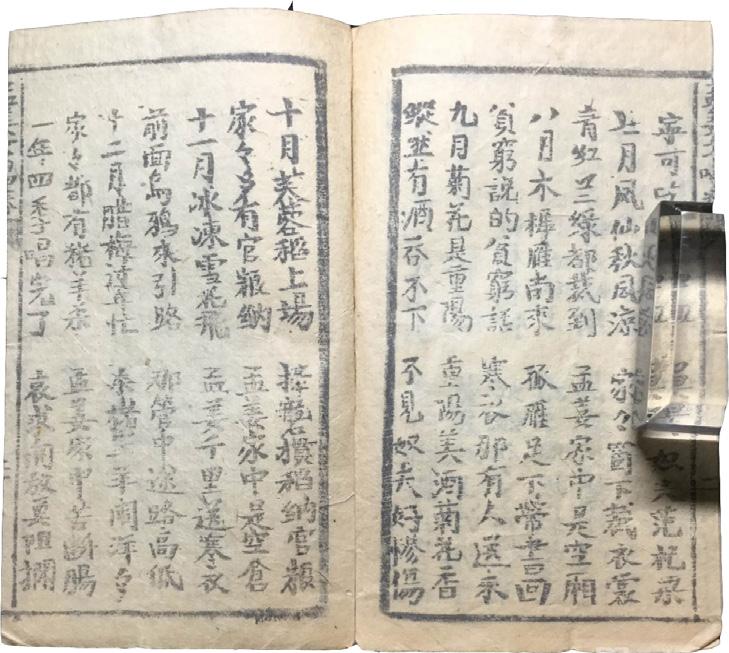 寧可 奴夫范杞梁
七月風仙秋風涼 家々窗下裁衣裳
青紅兰綠都裁到 孟姜家中是空廂
八月木樨雁南來 孤雁足下帶書回
貧窮說的貧窮話 寒谷那有人送衣
九月菊花是重陽 重陽美酒菊花香
縱然有酒吞不下 不見奴夫好慘傷
十月芙蓉稻上場 稻納官粮
家々多有官粮納 孟姜家中是空倉
十一月冰凍雪花飛 孟姜千里送寒衣
前面烏鴉來引路 那管中途路高低
十二月臘梅年忙 杀猪羊鬧洋々
家々都有猪羊杀 孟姜家中苦斷腸
一年四季唱完了 哀求開放莫阻攔